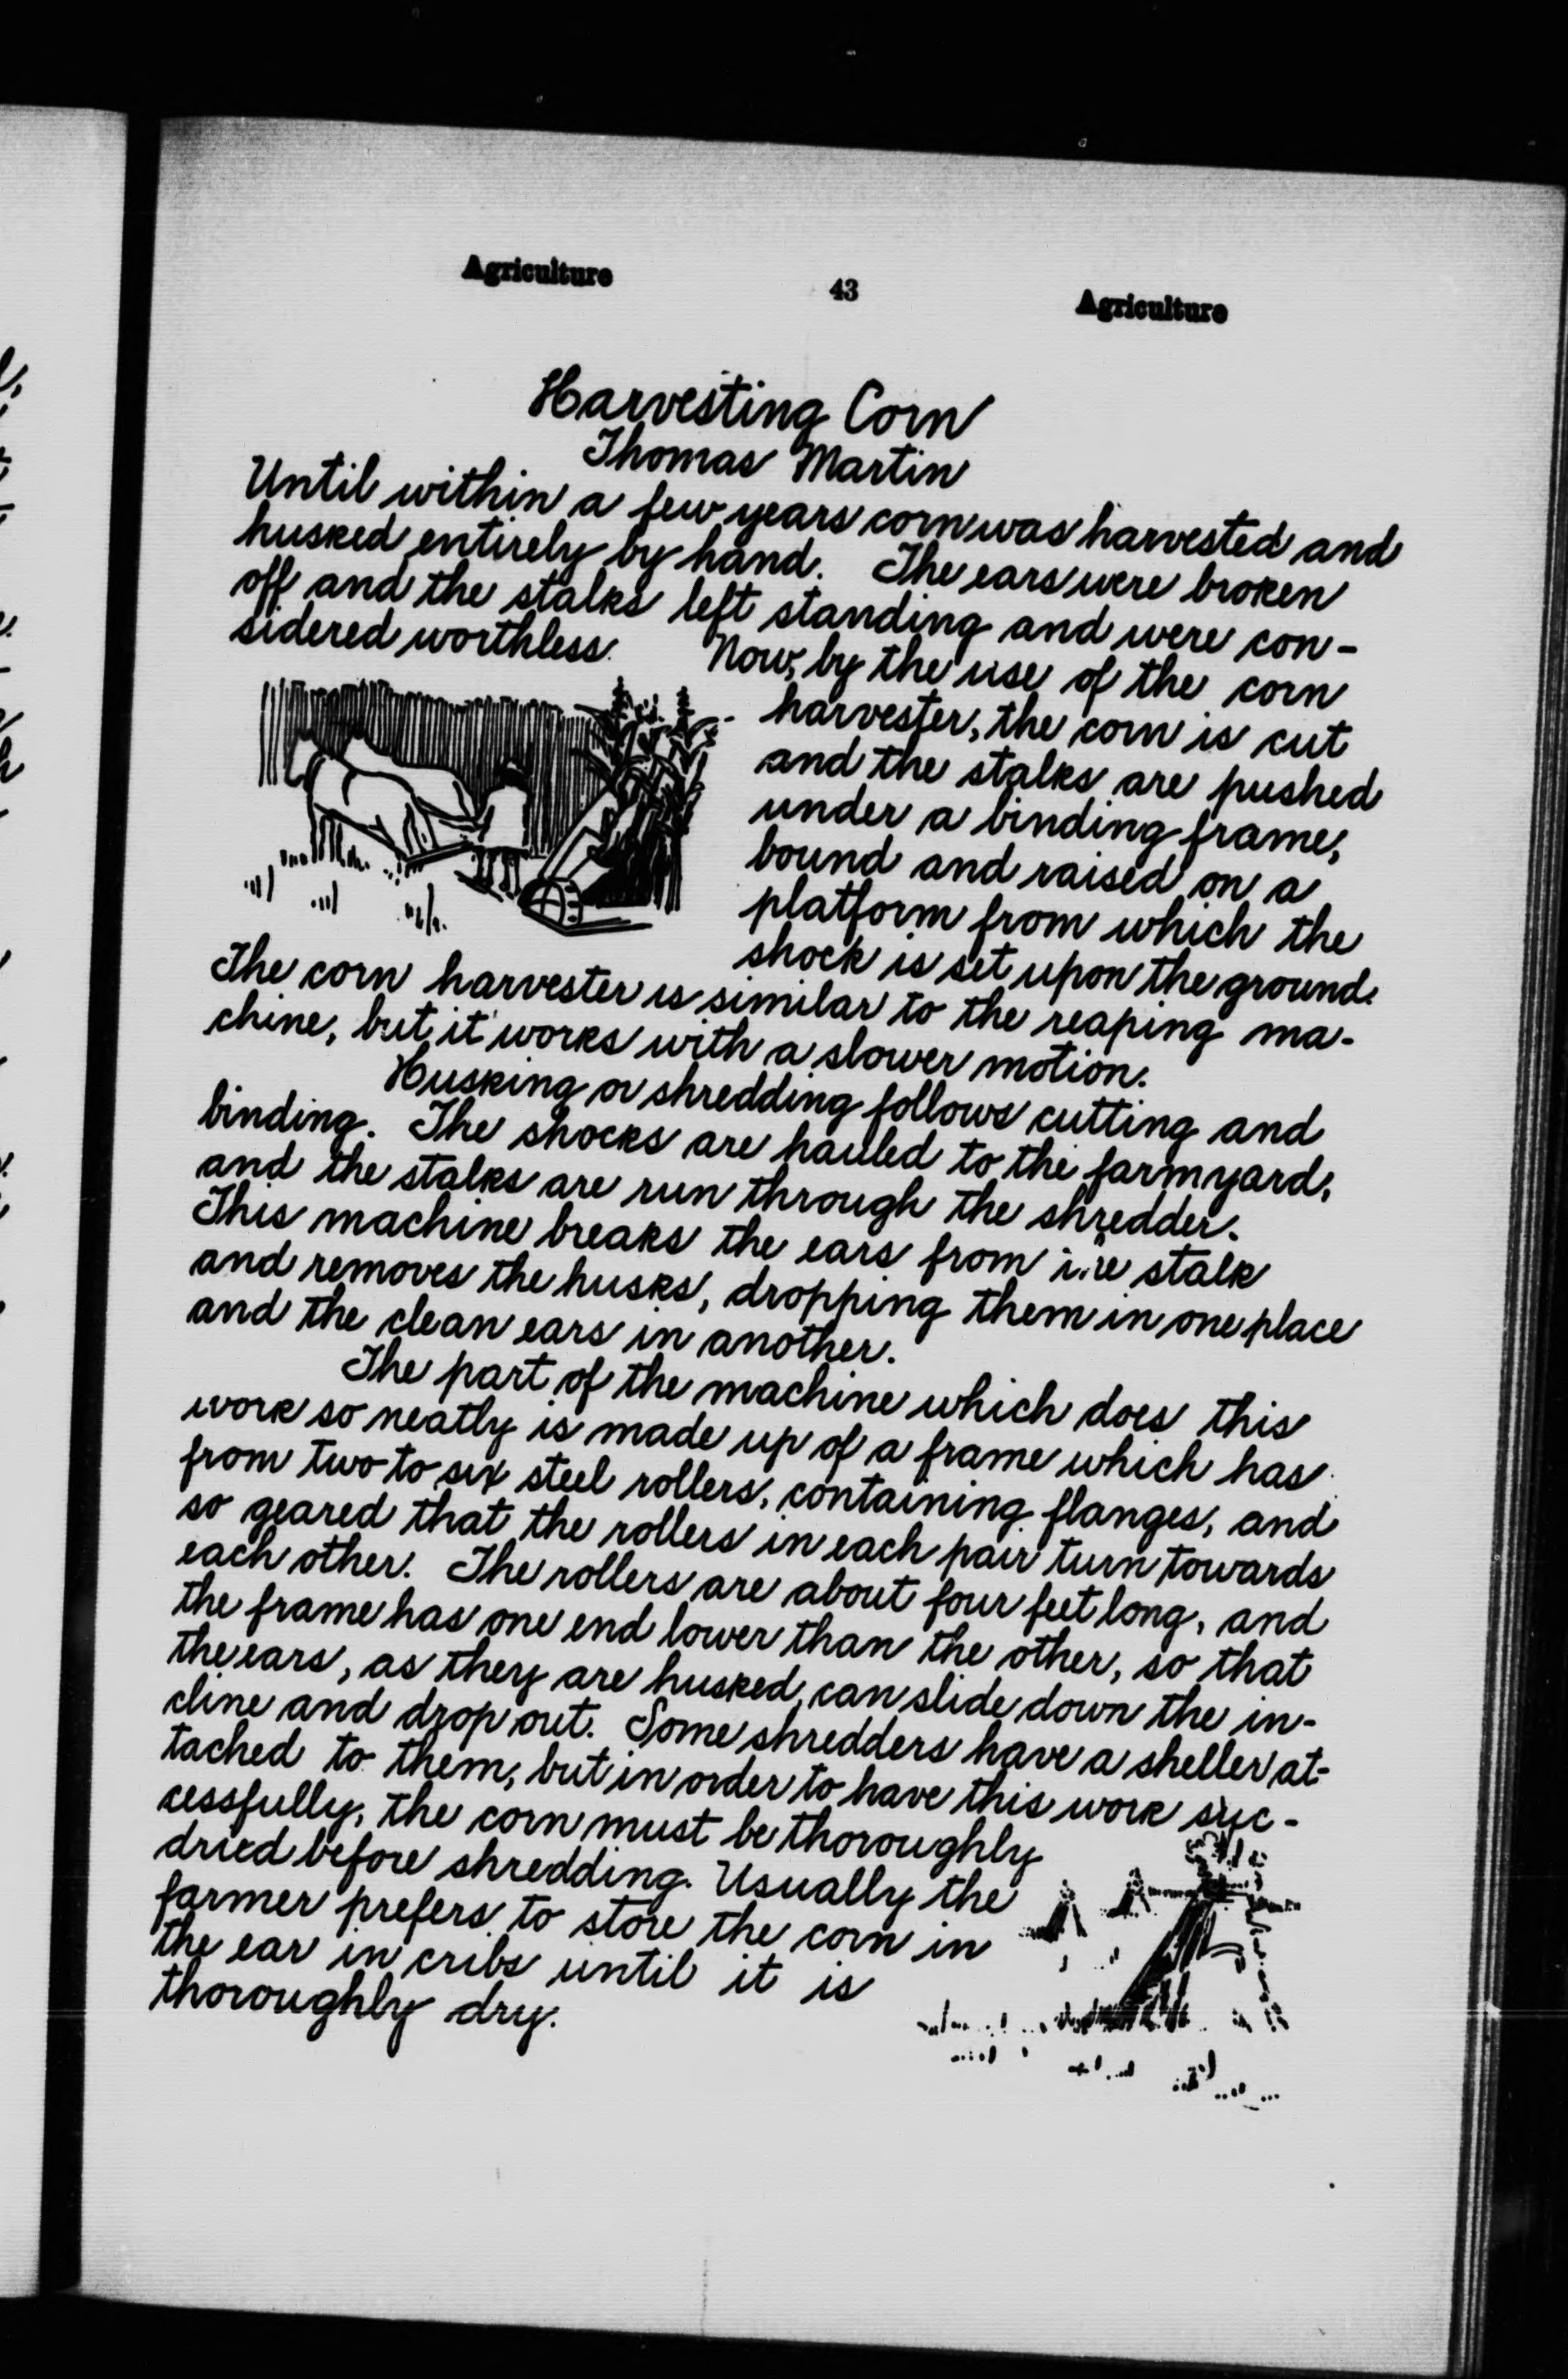 Agriculture 43 Agriculture
Harvesting Corn
Thomas Martin
Until within a few years corn was harvested and
husked entirely by hand. The ears were broken
off and the stalks left standing and were con-
sidered worthless. Now, by the use of the corn
harvester, the corn is cut
and the stalks are pushed
under a binding frame,
bound and raised on a
platform from which the
shock is set upon the ground.
The corn harvester is similar to the reaping ma-
chine, but it works with a slower motion.
Husking or shredding follows cutting and
binding. The shocks are hauled to the farmyard,
and the stalks are run through the shredder.
This machine breaks the ears from the stalk
and removes the husks, dropping them in one place
and the clean ears in another.
The part of the machine which does this
work so neatly is made up of a frame which has
from two to six steel rollers, containing flanges, and
so geared that the rollers in each pair turn towards
each other. The rollers are about four feet long, and
the frame has one end lower than the other, so that
the ears, as they are husked, can slide down the in-
cline and drop out. Some shredders have a sheller at-
tached to them, but in order to have this work suc-
cessfully, the corn must be thoroughly
dried before shredding. Usually the
farmer prefers to store the corn in
the ear in cribs until it is
thoroughly dry.